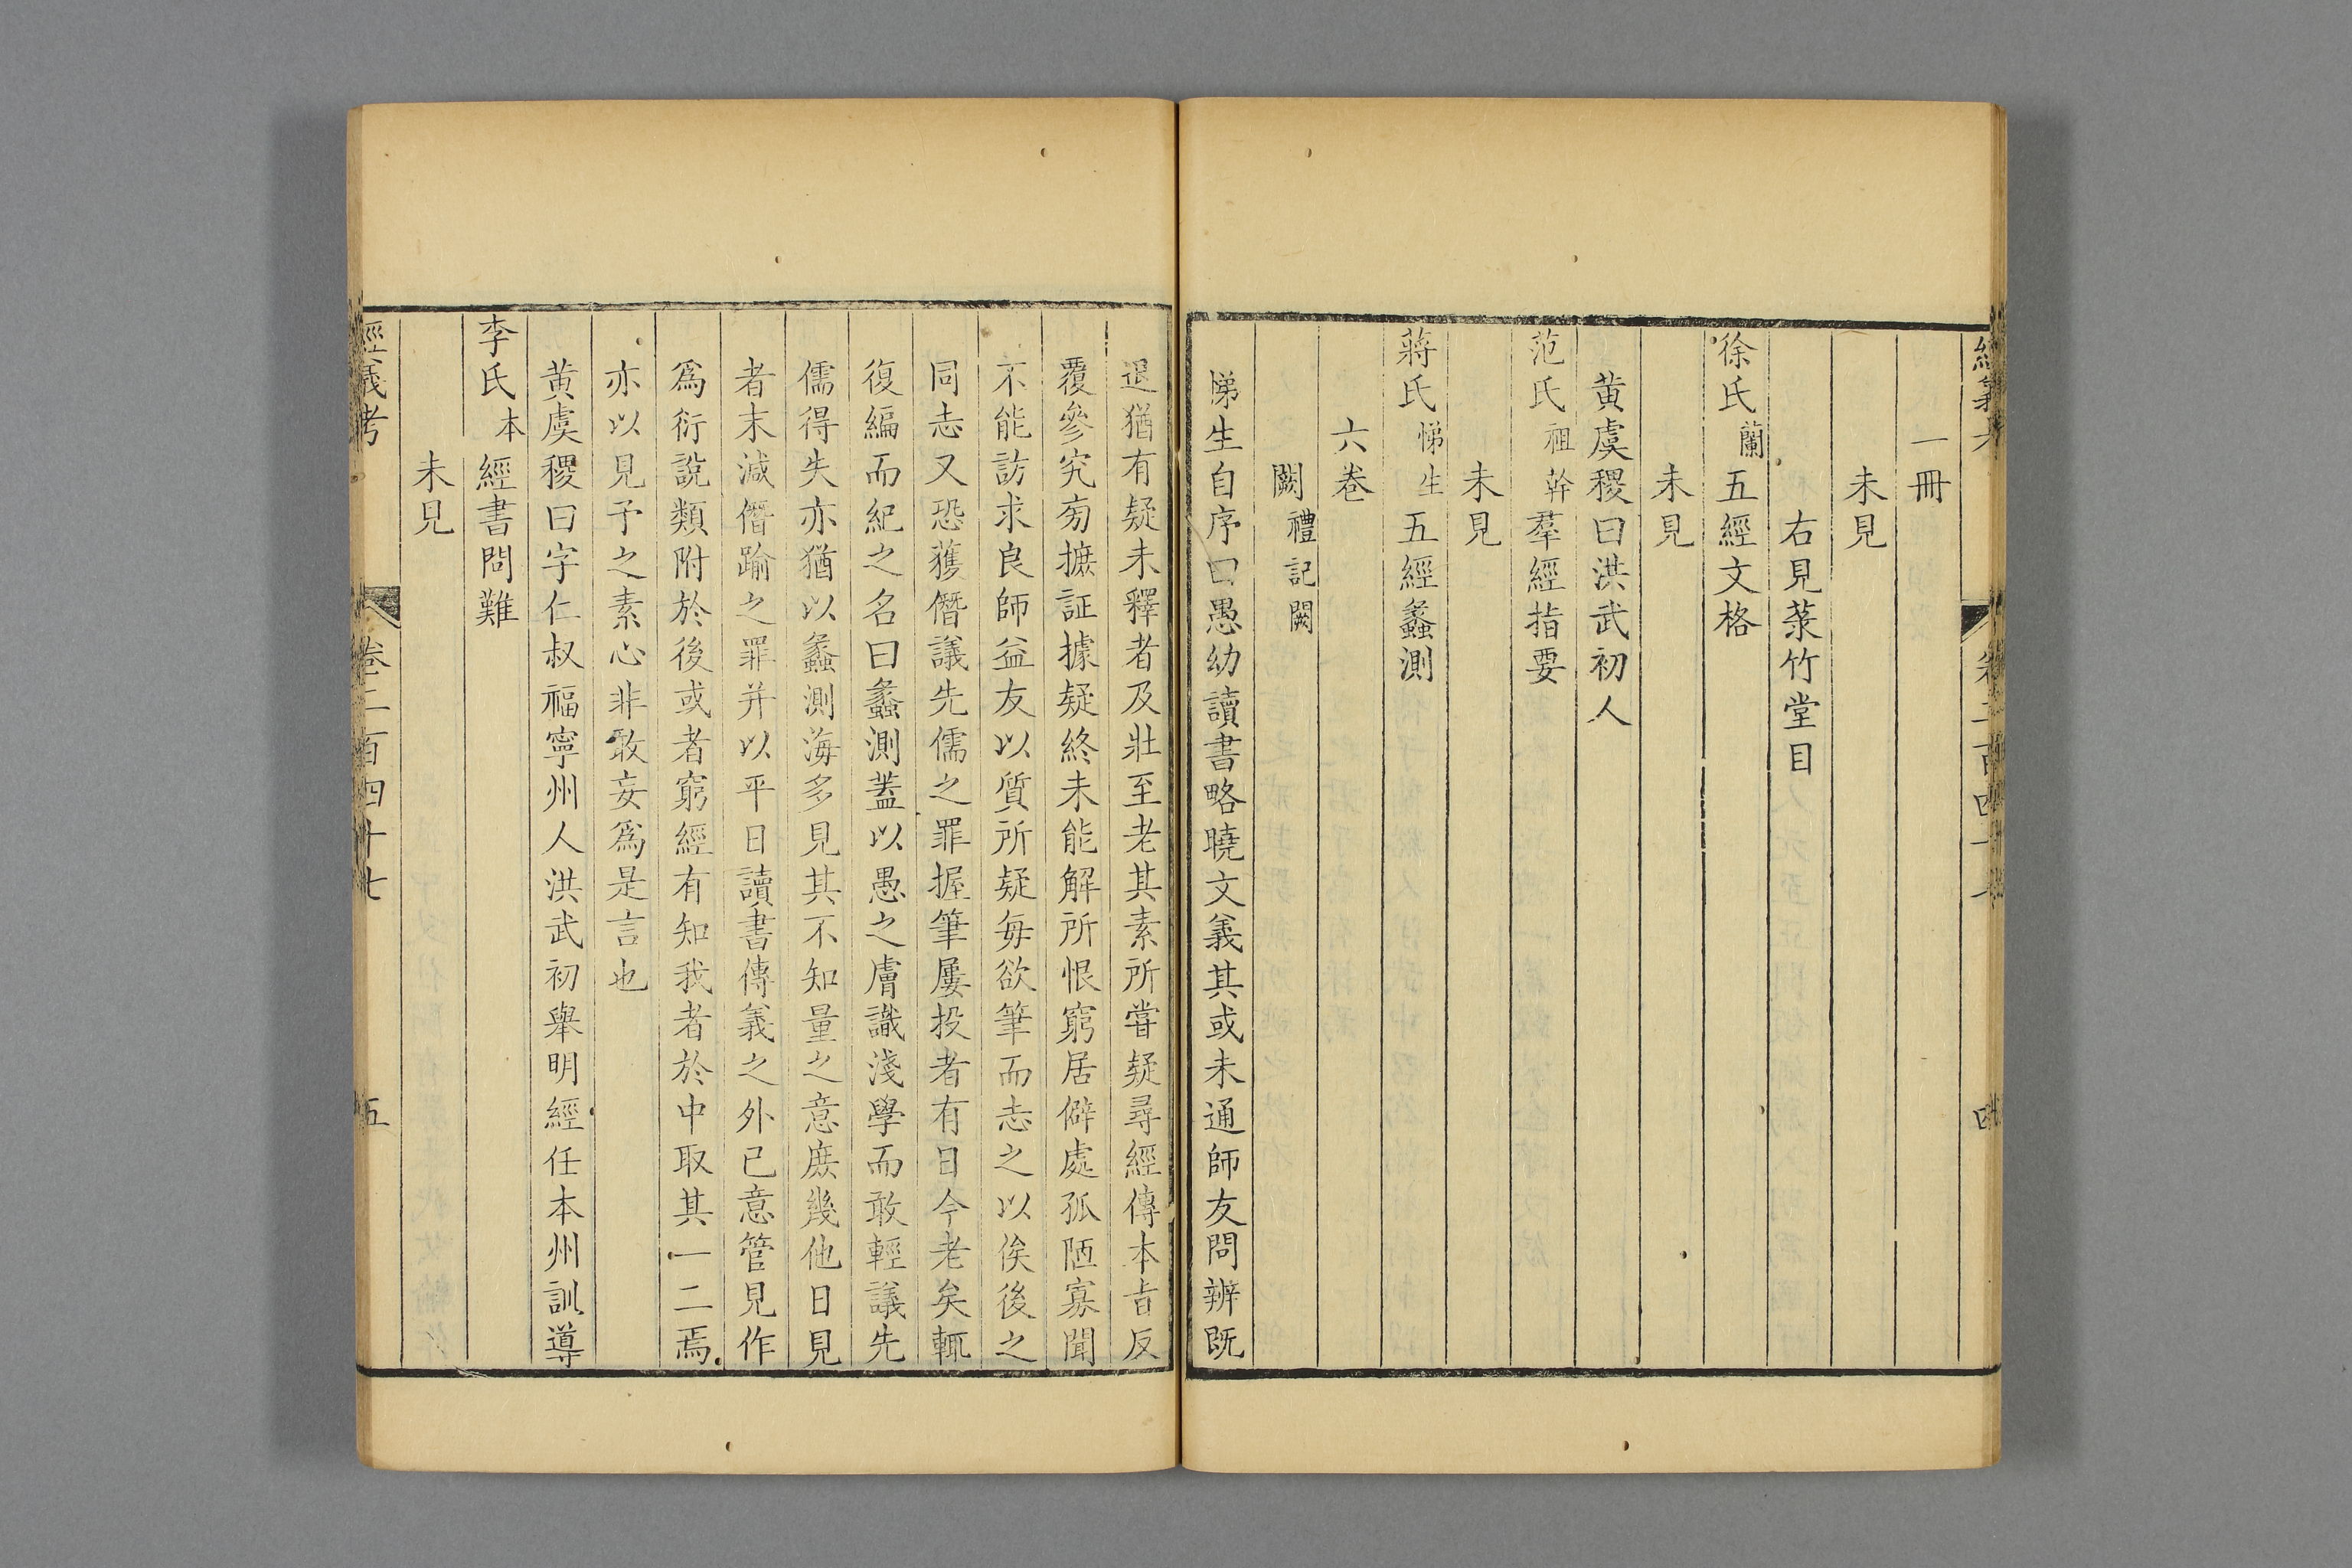 經義考
卷二百四十七
四
一冊
未見
右見菉竹堂目
徐氏蘭五經文格
未見
黄虞稷曰洪武初人
范氏祖幹羣經指要
未見
蔣氏悌生五經蠡測
六卷
闕禮記闕
悌生自序曰愚幼讀書略曉文義其或未通師友問辨既
退猶有疑未釋者及壯至老其素所嘗疑尋經傳本旨反
覆參究旁摭証據疑終未能解所恨窮居僻處孤陋寡聞
不能訪求良師益友以質所疑每欲筆而志之以俟後之
同志又恐獲僭議先儒之罪握筆屢投者有日今老矣輒
復編而紀之名曰蠡測蓋以愚之膚識淺學而敢輕議先
儒得失亦猶以蠡測海多見其不知量之意庶幾他日見
者末減僭踰之罪并以平日讀書傳義之外已意管見作
爲衍說類附於後或者窮經有知我者於中取其一二焉
亦以見予之素心非敢妄爲是言也
黄虞稷曰字仁叔福寧州人洪武初舉明經任本州訓導
李氏本經書問難
未見
經義考
卷二百四十七
五